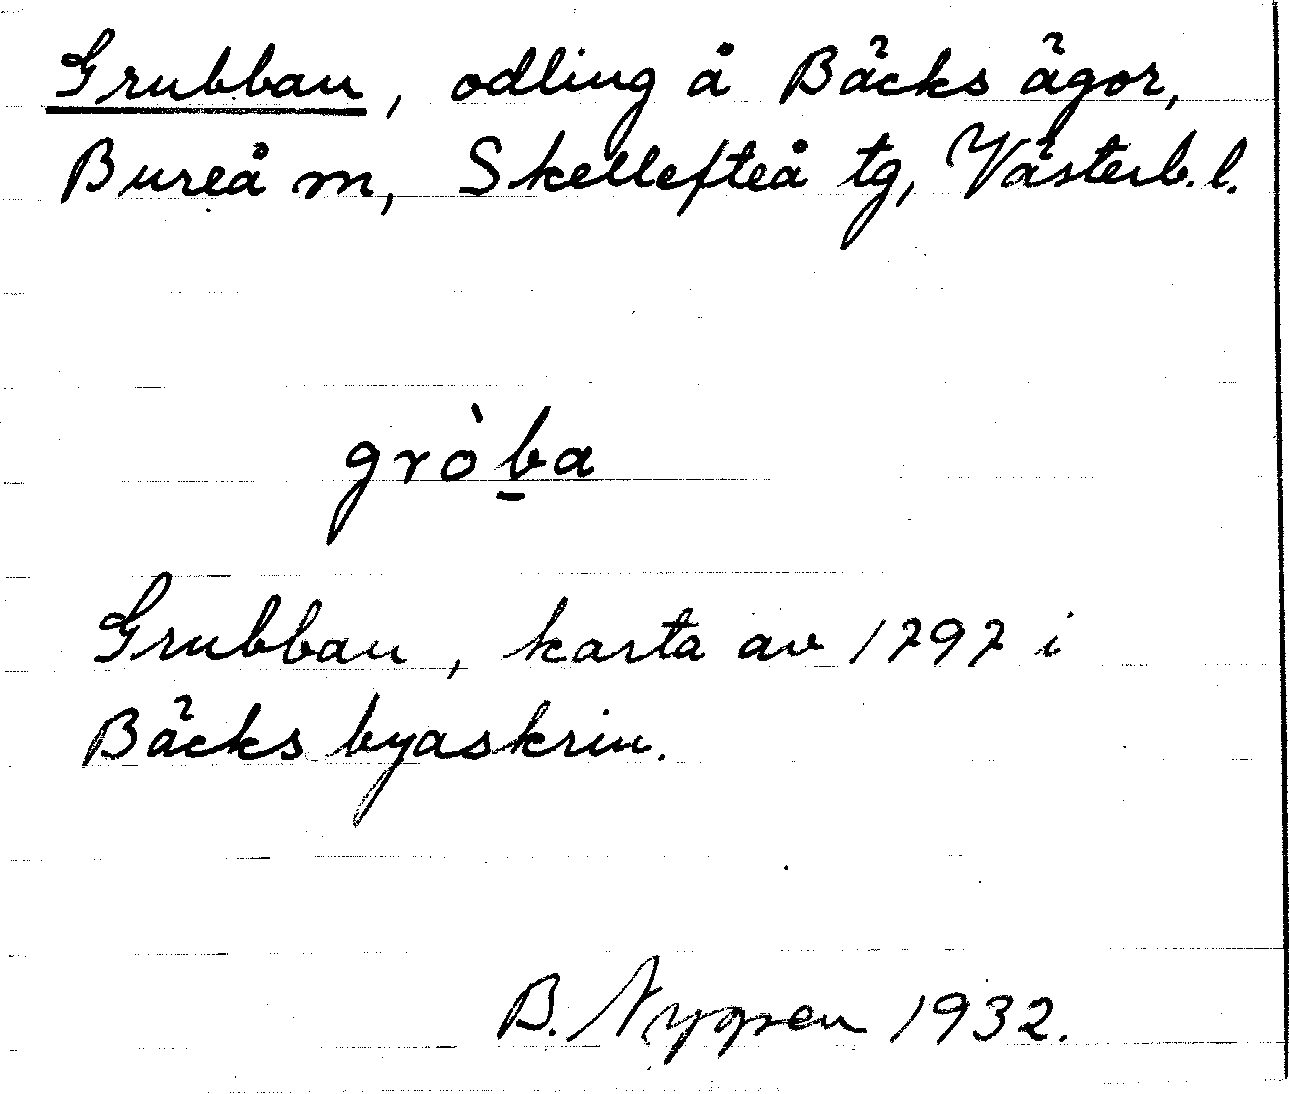 Grubban, odling å Bäcks ägor,
Bureå m, Skellefteå tg, Västerb. l.
grò̀b̲a
Grubban, karta av 1797 i
Bäcks byaskrin.
B. 1932.